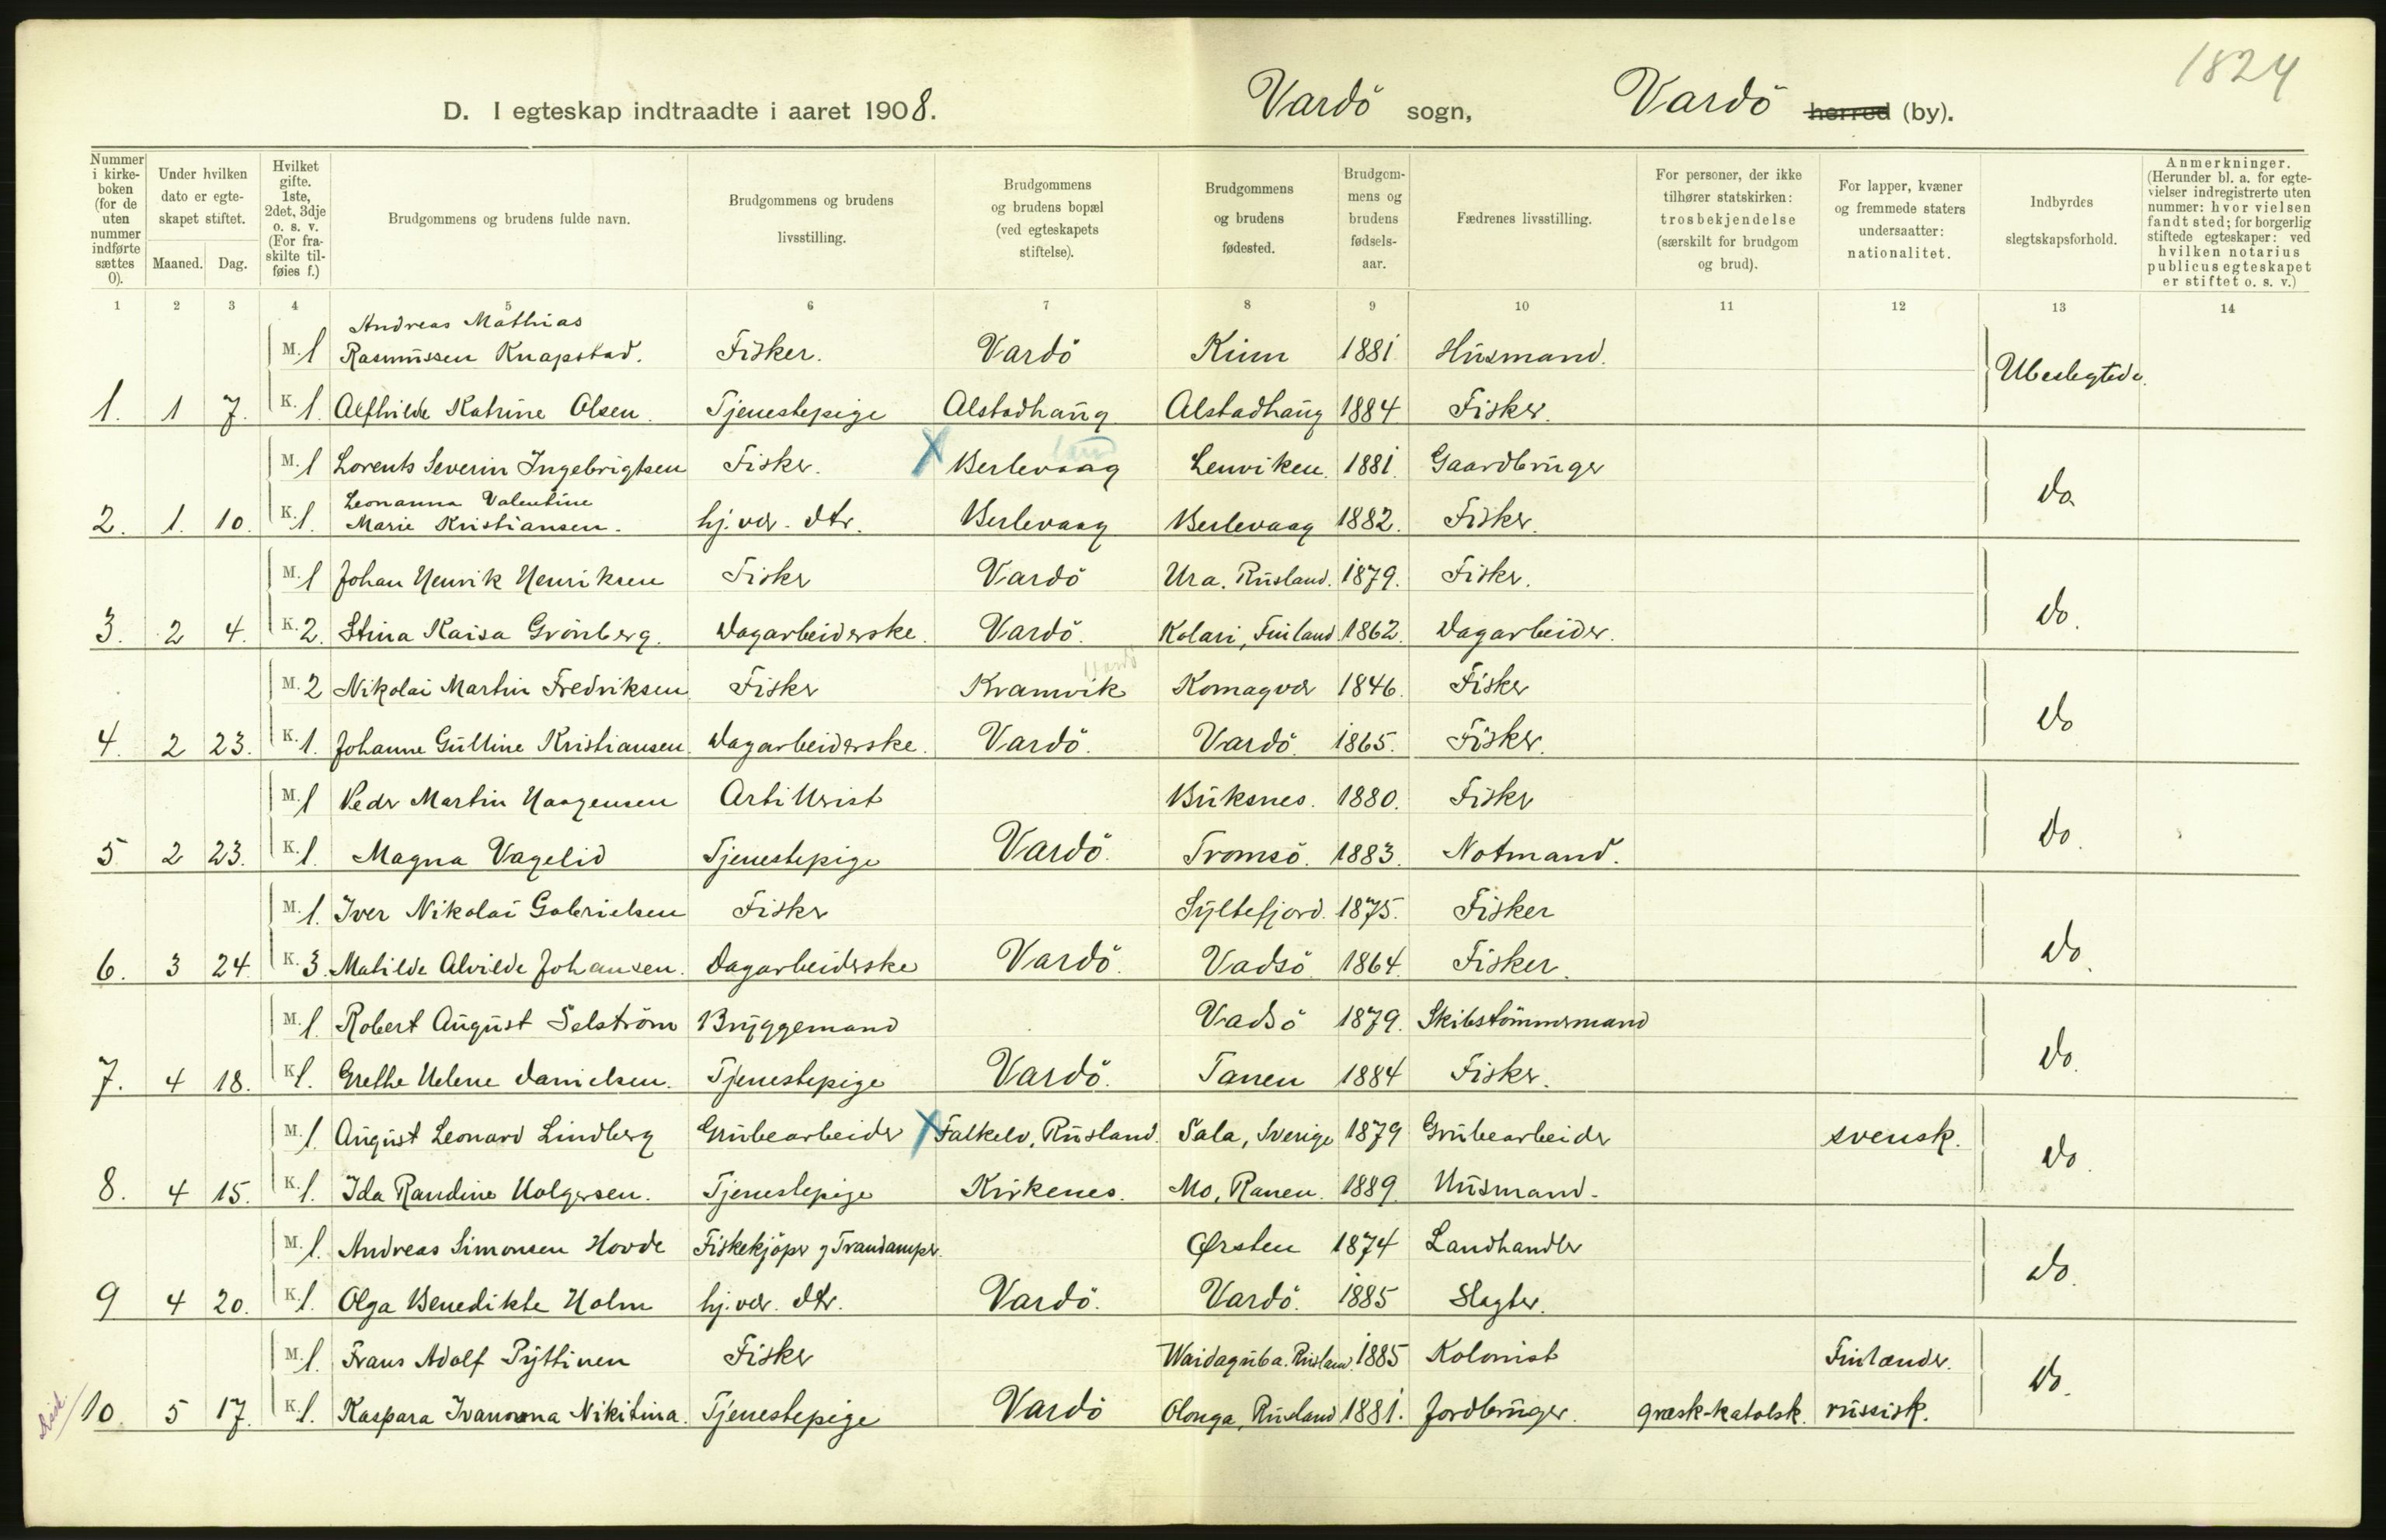 1824
D. I egteskap indtraadte i aaret 1908. Vardö sogn, Vardö herred (by).
Nummer i kirkeboken (for de uten nummer indførte sættes 0).
Under hvilken dato er egteskapet stiftet.
Maaned. Dag.
Hvilket gifte. 1ste, 2det, 3dje o. s. v. (For fraskilte tilføies f.)
Brudgommens og brudens fulde navn.
Brudgommens og brudens livsstilling.
Brudgommens og brudens bopæl (ved egteskapets stiftelse).
Brudgommens og brudens fødested.
Brudgommens og brudens fødselsaar.
Fædrenes livsstilling.
For personer, der ikke tilhører statskirken: trosbekjendelse (særskilt for brudgom og brud).
For lapper, kvæner og fremmede staters undersaatter: nationalitet.
Indbyrdes slegtskapsforhold.
Anmerkninger. (Herunder bl. a. for egtevielser indregistrerte uten nummer: hvor vielsen fandt sted; for borgerlig stiftede egteskaper: ved hvilken notarius publicus egteskapet er stiftet o. s. v.)
1 2 3 4 5 6 7 8 9 10 11 12 13 14
M. 1 Andreas Mathias Rasmussen Knapstad. Fisker. Vardö Kinn 1881 Husmand. Ubeslegtede.
1. 1 7. K. 1. Alfhilde Katrine Olsen. Tjenestepige Alstadhaug Alstadhaug 1884 Fisker.
M. 1 Lorents Severin Ingebrigtsen Fisker. X Berlevaag land Lenviken. 1881. Gaardbruger do
2. 1. 10. K. 1. Leonanna Valentine Marie Kristiansen. hj. vær. dtr. Berlevaag Berlevaag 1882. Fisker.
M. 1 Johan Henrik Henriksen Fisker Vardö Ura. Rusland. 1879. Fisker. do.
3. 2 4. K. 2. Stina Kaisa Grönberg. Dagarbeiderske. Vardö. Kolari, Finland 1862. Dagarbeider.
M. 2 Nikolai Martin Fredriksen Fisker Kramvik Vardö Komagvær 1846. Fisker do
4. 2 23. K. 1. Johanne Gulline Kristiansen. Dagarbeiderske. Vardö. Vardö. 1865. Fisker.
M. 1 Peder Martin Haagensen Artillerist Buksnes. 1880. Fisker do.
5 2 23. K. 1. Magna Vagelid Tjenestepige Vardö. Tromsö. 1883. Notmand.
M. 1. Iver Nikolai Gabrielsen Fisker Syltefjord. 1875. Fisker do.
6. 3 24. K. 3. Matilde Alvilde Johansen. Dagarbeiderske Vardö. Vadsö 1864. Fisker.
M. 1. Robert August Selström Bryggemand Vadsö 1879. Skibstömmermand do.
7. 4 18. K. 1. Grethe Helene Danielsen. Tjenestepige Vardö. Tanen 1884 Fisker.
M. 1. August Leonard Lindberg Grubearbeider X Falkelv, Rusland. Sala, Sverige 1879 Grubearbeider svensk. do.
8. 4 15. K. 1. Ida Randine Holgersen. Tjenestepige Kirkenes. Mo, Ranen. 1889. Husmand.
M. 1. Andreas Simonsen Hovde Fiskekjöper og Trandamper. Ørsten 1874 Landhandler do.
9 4 20. K. 1. Olga Benedikte Holm hj. vær. dtr. Vardö. Vardö. 1885 Slagter.
M. 1. Frans Adolf Pyttinen Fisker Waidaguba. Rusland. 1885 Kolonist Finlænder. do.
10. 5 17. K. 1. Kaspara Ivanovna Nikitina. Tjenestepige Vardö Olonga, Rusland 1881. Jordbruger. græsk-katolsk. russisk.